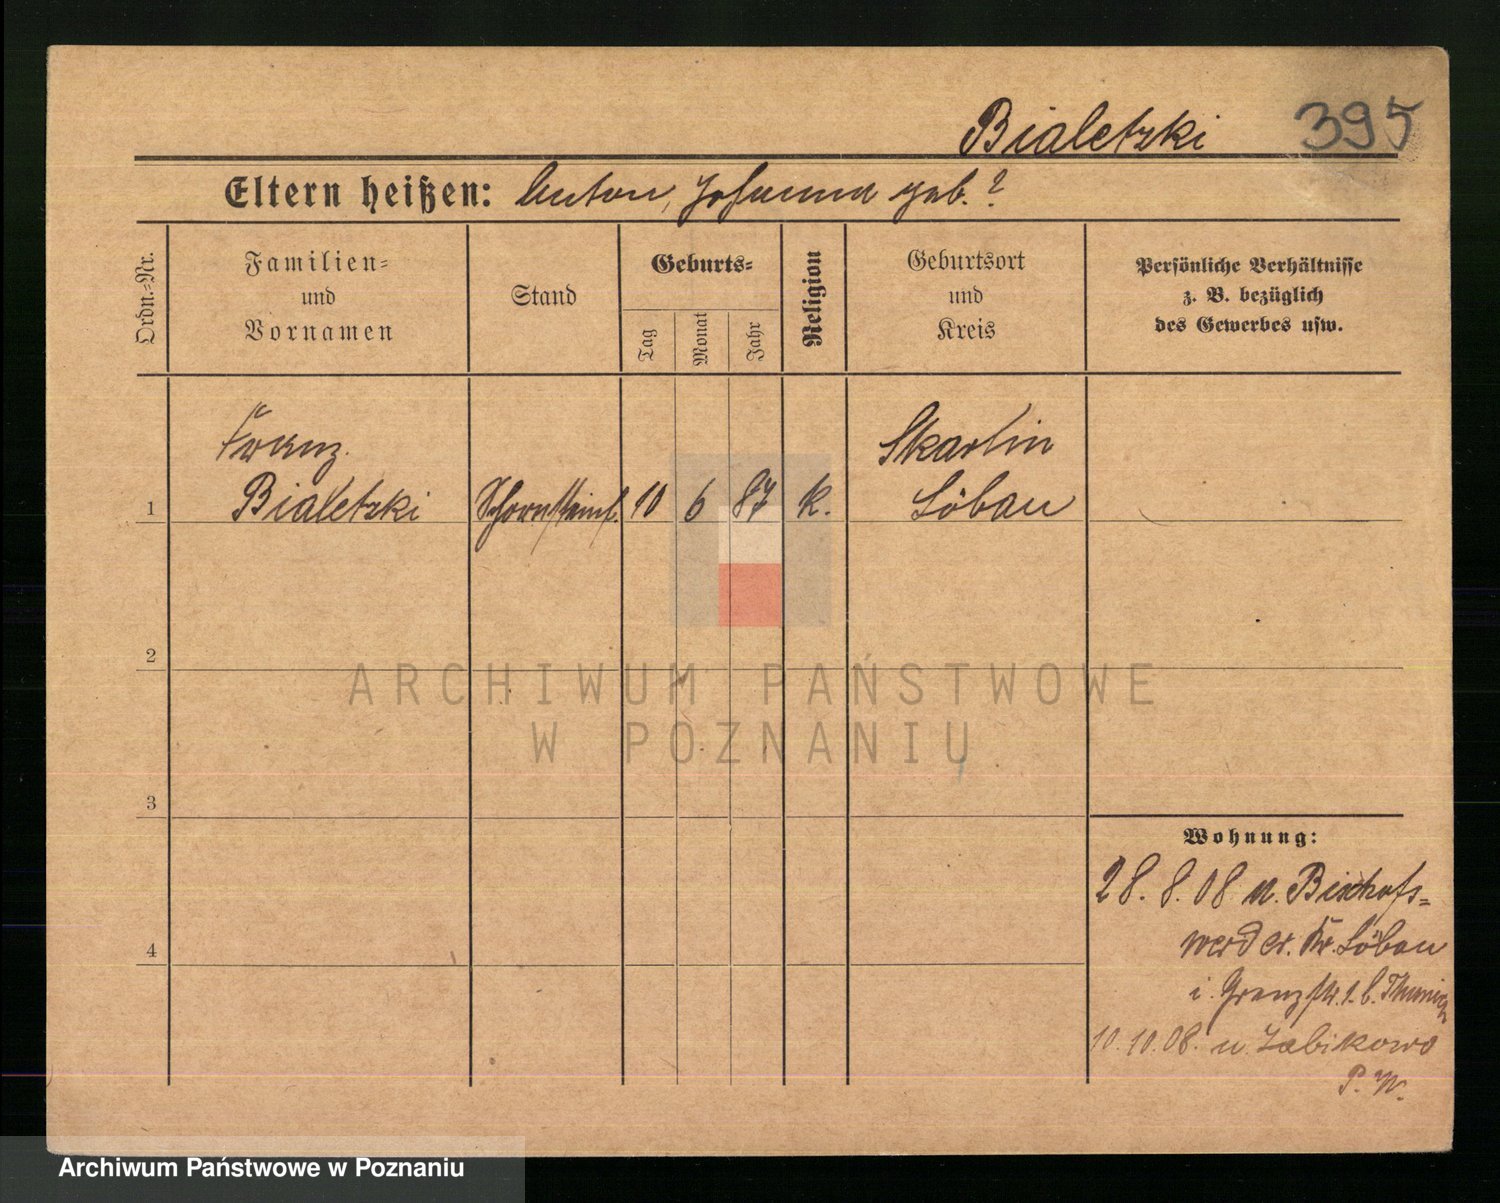 Bialetzki 395
Eltern heißen: Anton, Johanna geb. ?
Ordn.-Nr.
Familien-
und
Vornamen
Stand
Geburts-
Tag
Monat
Jahr
Religion
Geburtsort
und
Kreis
Persönliche Verhältnisse
z. B. bezüglich
des Gewerbes usw.
Franz
Bialetzki
1
Schornsteinf. 10 6 87 k.
Skarlin
Löbau
2
3
4
Wohnung:
28. 8. 08 v. Bischofs-
werder. Kr. Löbau
i. Grenzstr. 1. b.
10. 10. 08. n. Zabikowo
P. W.
ARCHIWUM PAŃSTWOWE
W POZNANIU
Archiwum Państwowe w Poznaniu